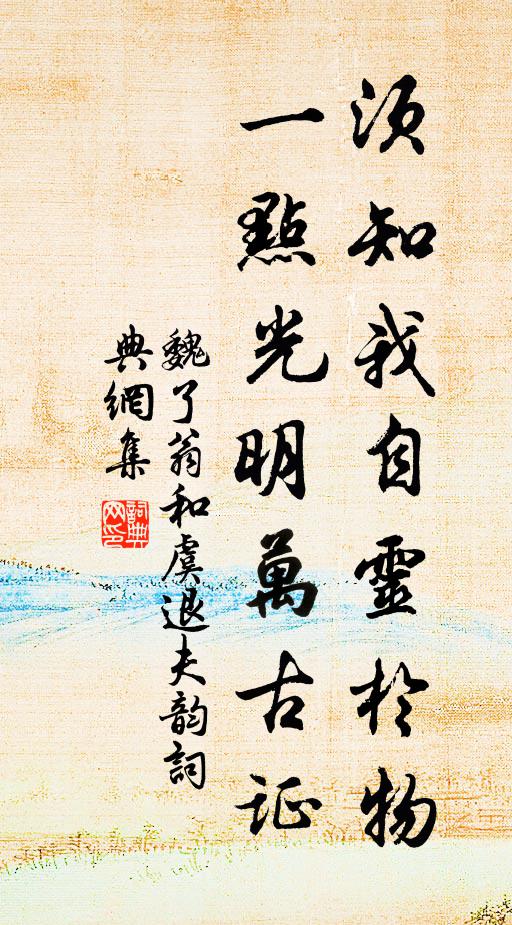 須知我自靈於物
一點光明萬古证
魏了翁和虞退夫韵詞
典網集
詞典
网印